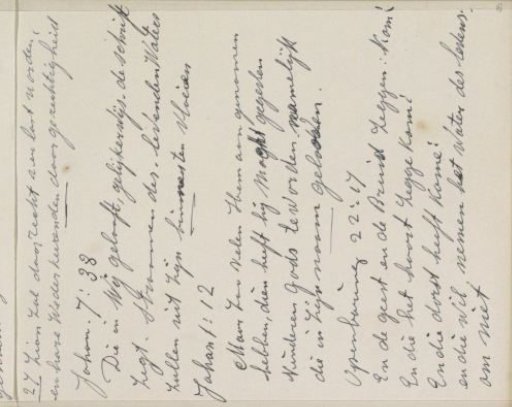 27 Zion zal door recht verlost worden,
en hare wederkeerenden door gerechtigheid
Johan. 7:38
Die in Mij gelooft, gelijkerwijs de schrift
zegt. Stroomen des levenden Waters
zullen uit zijn vloeien
Johan 1:12
Maar zoo velen Hem aangenomen
hebben, dien heeft hij Macht gegeven
Kinderen Gods te worden, namelijk
die in Zijn naam gelooven.
Openbaring 22:17
En de geest en de Bruid zeggen: Kom!
En die het hoort zegge kom!
En die dorst heeft kome!
en die wil neme het water des levens
om niet